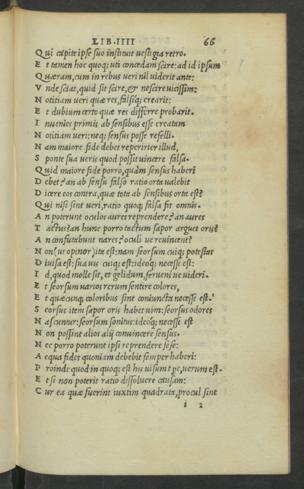 LIB·IIII 66
Qui capite ipse suo instituit uestigia retro.
Et tamen hoc quoq; uti concedam scire: ad id ipsum
Quæram, cum in rebus ueri nil uiderit ante:
Vnde sciat, quid sit scire, & nescire uicissim:
Notitiam ueri quæ res, falsiq; crearit:
Et dubium certo quæ res differre probarit.
Inuenies primis ab sensibus esse creatam
Notitiam ueri: neq; sensus posse refelli.
Nam maiore fide debet reperirier illud,
Sponte sua ueris quod possit uincere falsa.
Quid maiore fide porro, quàm sensus haberi
Debet? an ab sensu falso ratio orta ualebit
Dicere eos contra, quæ tota ab sensibus orta est?
Qui nisi sint ueri, ratio quoq; falsa fit omnis.
An poterunt oculos aures reprendere? an aures
Tactus? an hunc porro tactum sapor arguet oris?
An confutabunt nares? oculi ue reuincent?
Non (ut opinor) ita est: nam seorsum cuiq; potestas
Diuisa est: sua uis cuiq; est: ideoq; necesse est:
Id, quod molle sit, et gelidum, feruens ue uideri.
Et seorsum uarios rerum sentire colores,
Et quæcunq; coloribus sint coniuncta necesse est.
Seorsus item sapor oris habet uim: seorsus odores
Nascuntur: seorsum sonitus: ideoq; necesse est
Non possint alios alij conuincere sensus.
Nec porro poterunt ipsi reprendere sese:
Aequa fides quoniam debebit semper haberi:
Proinde quod in quoq; est his uisum tempore, uerum est.
Et si non poterit ratio dissoluere causam:
Cur ea quæ fuerint iuxtim quadrata, procul sint
i 2